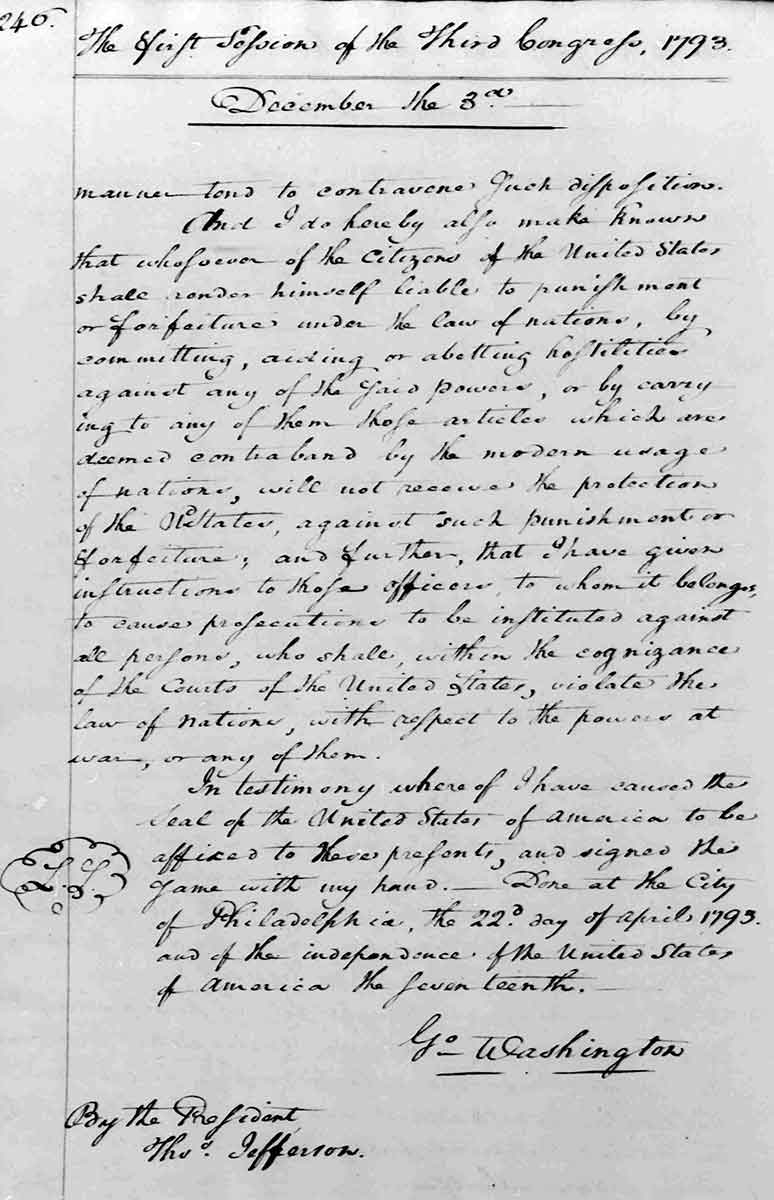 246.
The first Session of the Third Congress, 1793.
December the 3rd
manner tend to contravene such disposition.
And I do hereby also make known
that whosoever of the Citizens of the United States
shall render himself liable to punishment
or forfeiture under the law of nations, by
committing, aiding or abetting hostilities
against any of the said powers, or by carry
ing to any of them those articles which are
deemed contraband by the modern usage
of nations, will not receive the protection
of the UStates, against such punishment or
forfeiture; and further, that I have given
instructions to those officers, to whom it belongs,
to cause prosecutions to be instituted against
all persons, who shall, within the cognizance
of the Courts of the United States, violate the
law of nations, with respect to the powers at
war, or any of them.
In testimony where of I have caused the
Seal of the United States of America to be
L.S.
affixed to these presents, and signed the
same with my hand. — Done at the City
of Philadelphia, the 22d. day of April 1793.
and of the independence of the United States
of America the seventeenth. —
Go Washington
By the President
Thos. Jefferson.